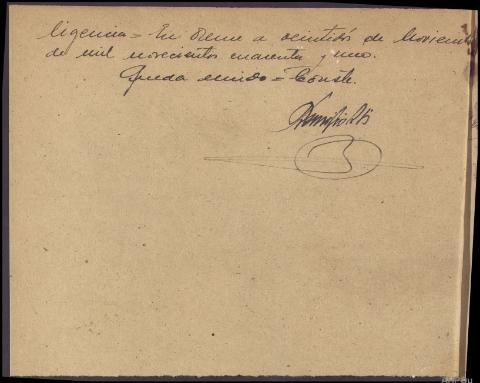 ligencia = En Reme a veintidós de Noviembre
de mil novecientos cuarenta y uno.
Queda unido = Conste.